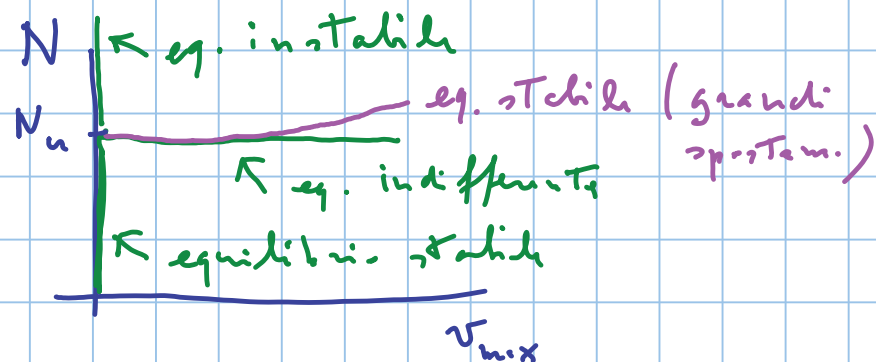 N
eq. instabile
eq. stabile (grandi
spostam.)
Ncr
eq. indifferente
equilibrio stabile
vmax